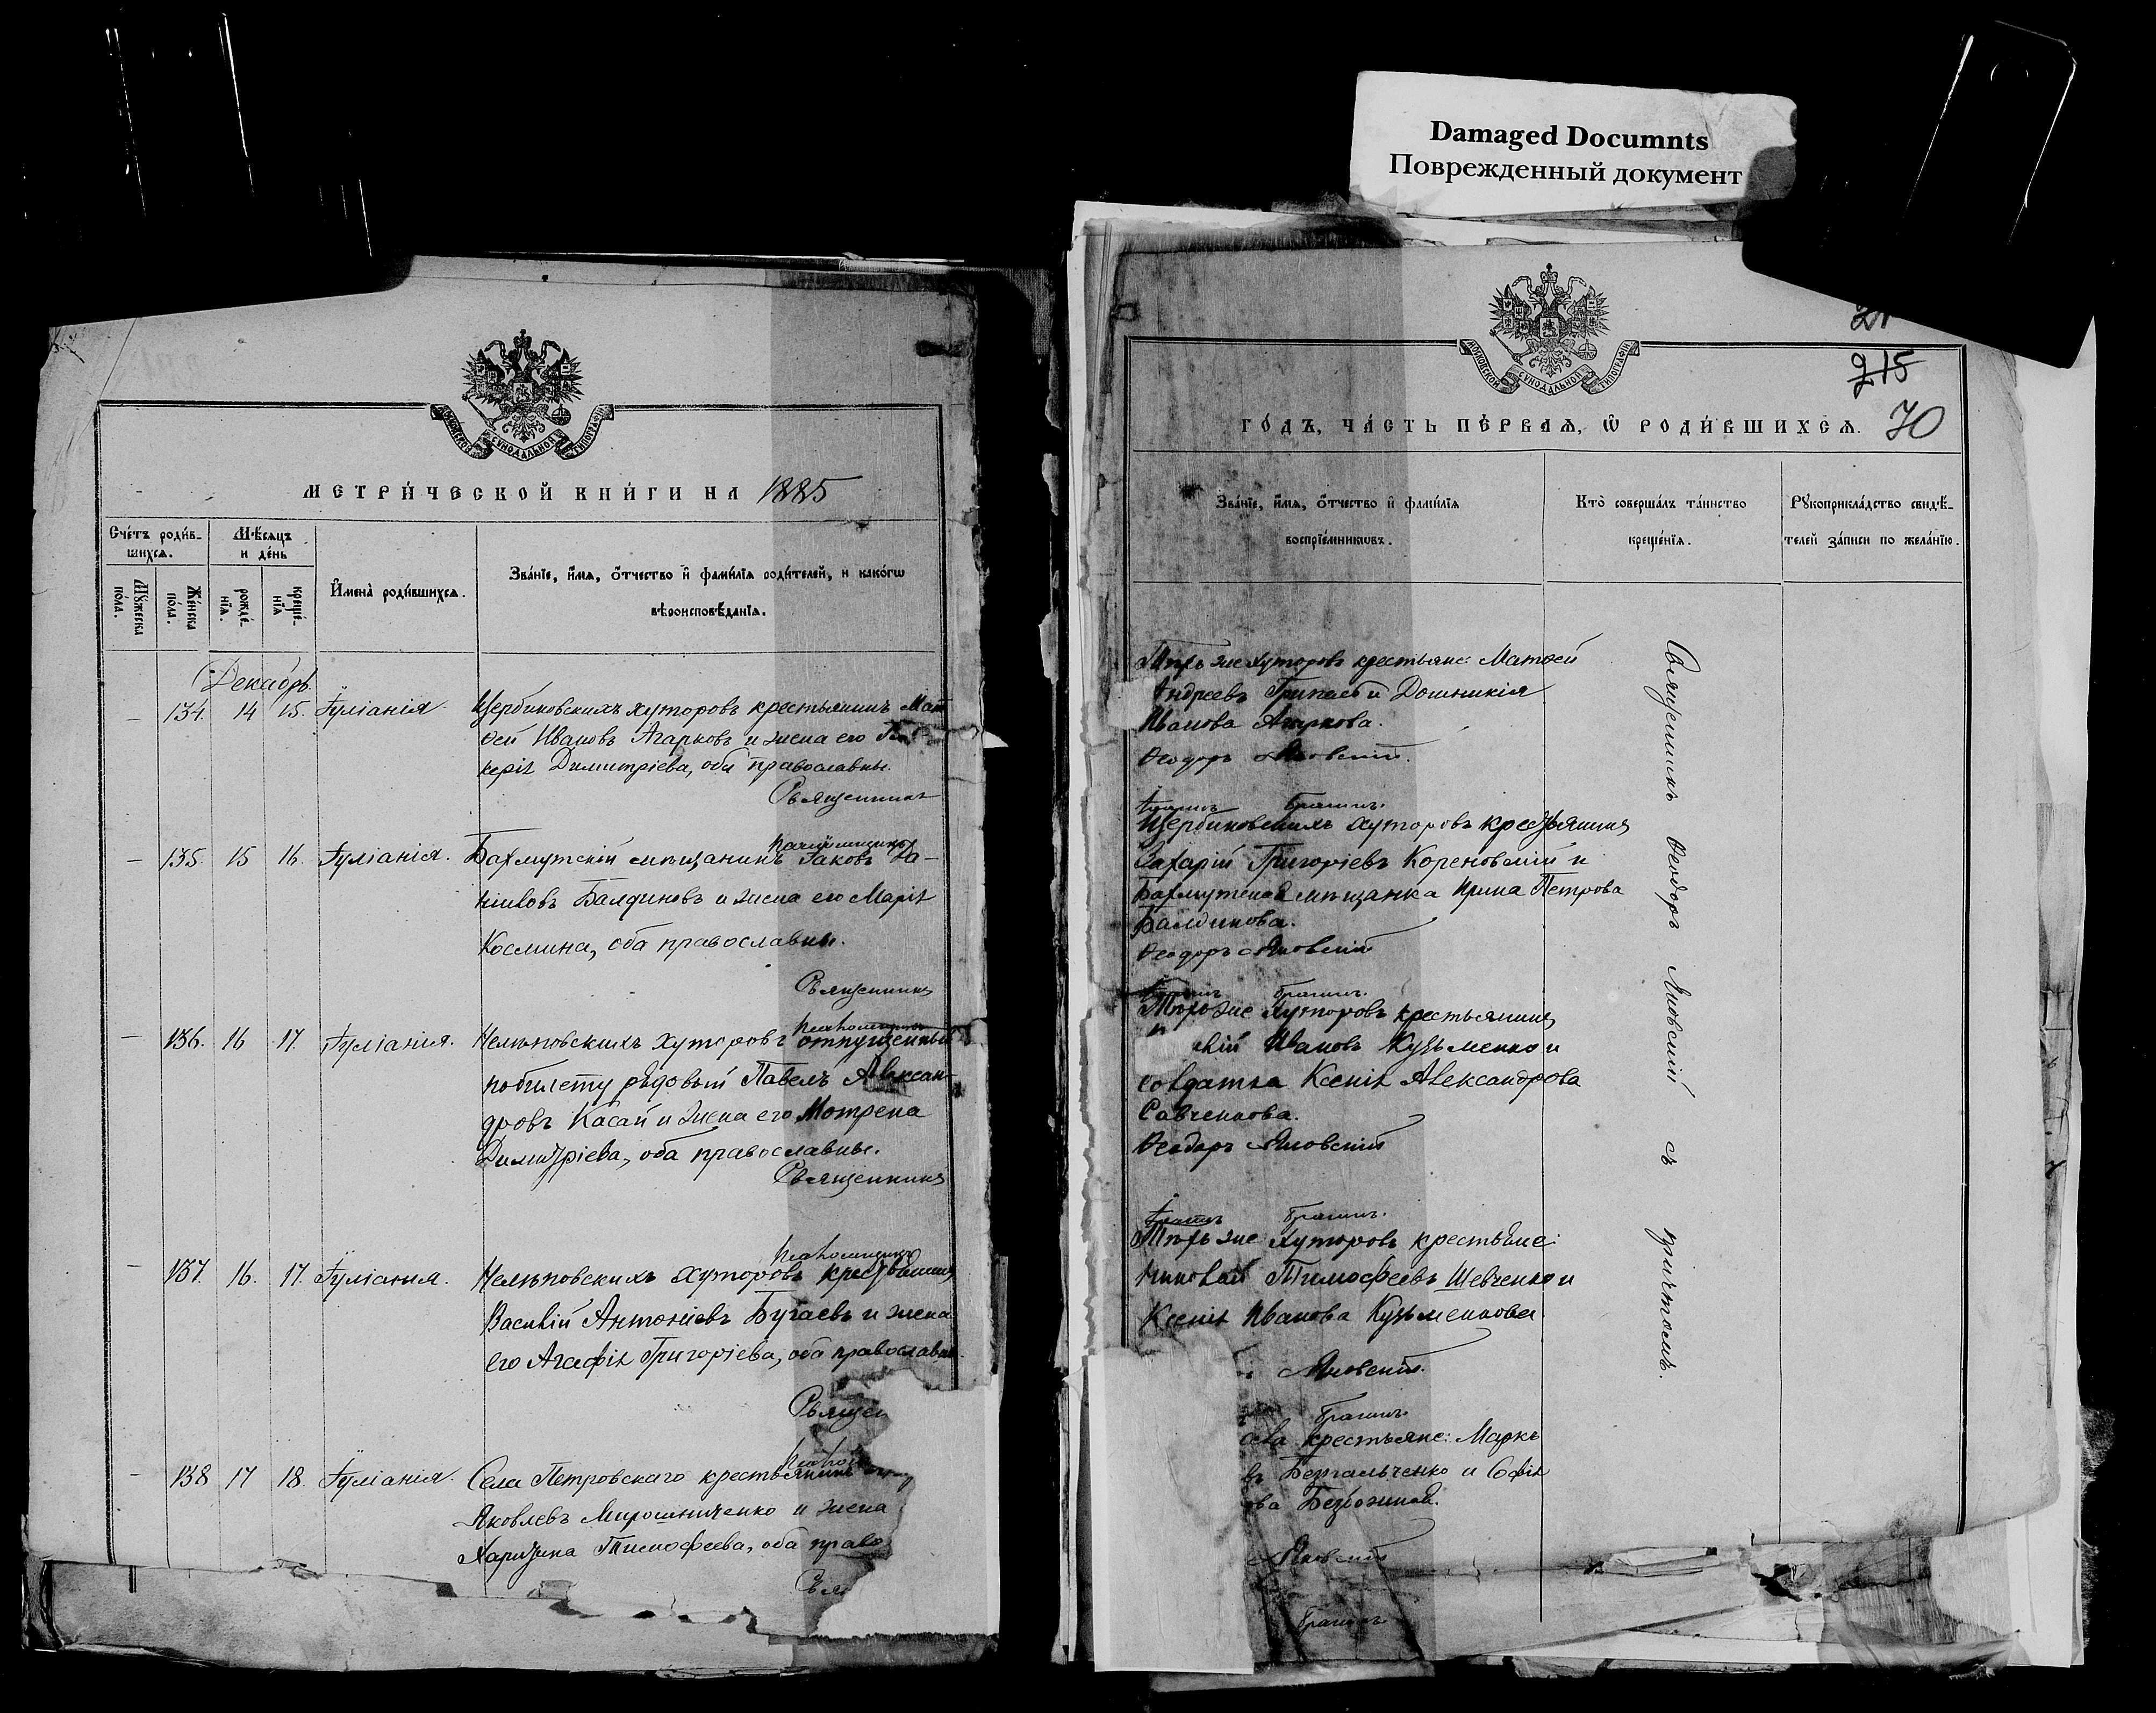 Damaged Documnts
Поврежденный документ
МОСКОВСКОЙ СѴНОДАЛЬНОЙ ТИПОГРАФІИ
МЕТРИ́ЧЕСКОЙ КНИ́ГИ НА 1885
Сче́тъ роди́в-
шихсѧ.
Мꙋ́жеска по́ла.
Же́нска по́ла.
Мѣ́сѧцъ
и де́нь
рожде́-
нїѧ.
креще́-
нїѧ
И҆мена̀ роди́вшихсѧ.
Зва́нїе, и҆́мѧ, ѻ҆́тчество и҆ фами́лїѧ роди́телей, и како́гѡ
вѣроисповѣ́данїѧ.
Декабрь.
134. 14 15. Іуліанія. Щербиновскихъ хуторовъ крестьянинъ Мат-
ѳей Ивановъ Агарковъ и жена его
Димитріева, оба православны.
Священникъ
135. 15 16. Іуліанія. Бахмутскій мѣщанинъ Іаковъ Да-
Балдиновъ и жена его Марія
Космина, оба православны.
Священникъ
136. 16 17. Іуліанія. Нелѣповскихъ хуторовъ отпущенный
по билету рядовый Павелъ Алексан-
дровъ Касай и жена его Мотрена
Димитріева, оба православны.
Священникъ
137. 16. 17. Іуліанія. Нелѣповскихъ хуторовъ крестьянинъ
Василій Антоніевъ Бугаевъ и жена
его Агафія Григоріева, оба православны.
Священ
138 17 18. Іуліанія. Села Петровскаго крестьянинъ
Яковлевъ Мирошниченко и жена
Харитина Тимофеева, оба право
Свя
МОСКОВСКОЙ СѴНОДАЛЬНОЙ ТИПОГРАФІИ
215
70
ГО́ДЪ, ЧА́СТЬ ПЕ́РВАѦ, Ѡ҆ РОДИ́ВШИХСѦ.
Зва́нїе, и҆́мѧ, ѻ҆́тчество и҆ фами́лїѧ
воспрїе́мникѡвъ.
Кто̀ соверша́лъ та́инство
креще́нїѧ.
Рꙋкоприкла́дство свидѣ́-
телей за́писи по жела́нїю.
Тѣхъ же хуторовъ крестьяне: Матѳей
Андреевъ и Домникія
Иванова Агаркова.
Ѳеодоръ Яновскій.
Щербиновскихъ хуторовъ крестьянинъ
Захарій Григоріевъ Кореновскій и
Бахмутская мѣщанка Ирина Петрова
Балдинова.
Ѳеодоръ Яновскій
Тѣхъ же хуторовъ крестьянинъ
Ивановъ Кузьменко и
солдатка Ксенія Александрова
Савченкова.
Ѳеодоръ Яновскій
Тѣхъ же хуторовъ крестьяне:
Николай Тимофеевъ Шевченко и
Ксенія Иванова Кузьменкова.
Яновскій.
крестьяне: Марко
и Софія
ова
Яновскій
Священникъ Ѳеодоръ Яновскій съ причтомъ.